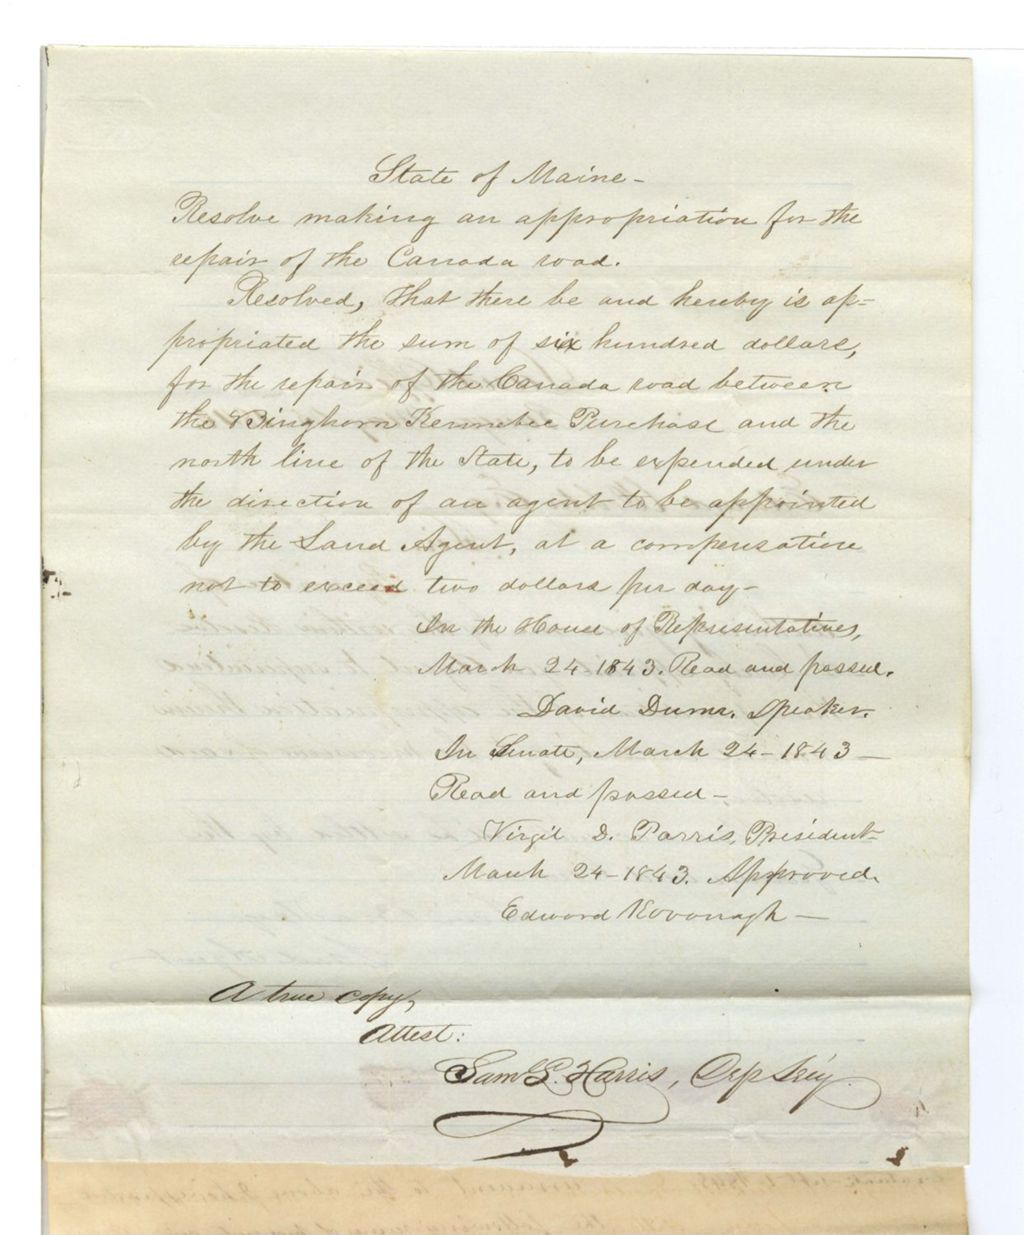 State of Maine-
Resolve making an appropriation for the
repair of the Canada road.
Resolved, That there be and hereby is ap=
propriated the sum of six hundred dollars,
for the repair of the Canada road between
the Bingham Kennebec Purchase and the
north line of the State, to be expended under
the direction of an agent to be appointed
by the Land Agent, at a compensation
not to exceed two dollars per day-
In the House of Representatives,
March 24 1843. Read and passed.
David Dunn. Speaker.
In Senate, March 24-1843-
Read and passed-
Virgil D. Parris, President
March 24-1843. Approved.
Edward Kavanagh-
A true copy,
Attest:
Saml L. Harris, Dep Secy.